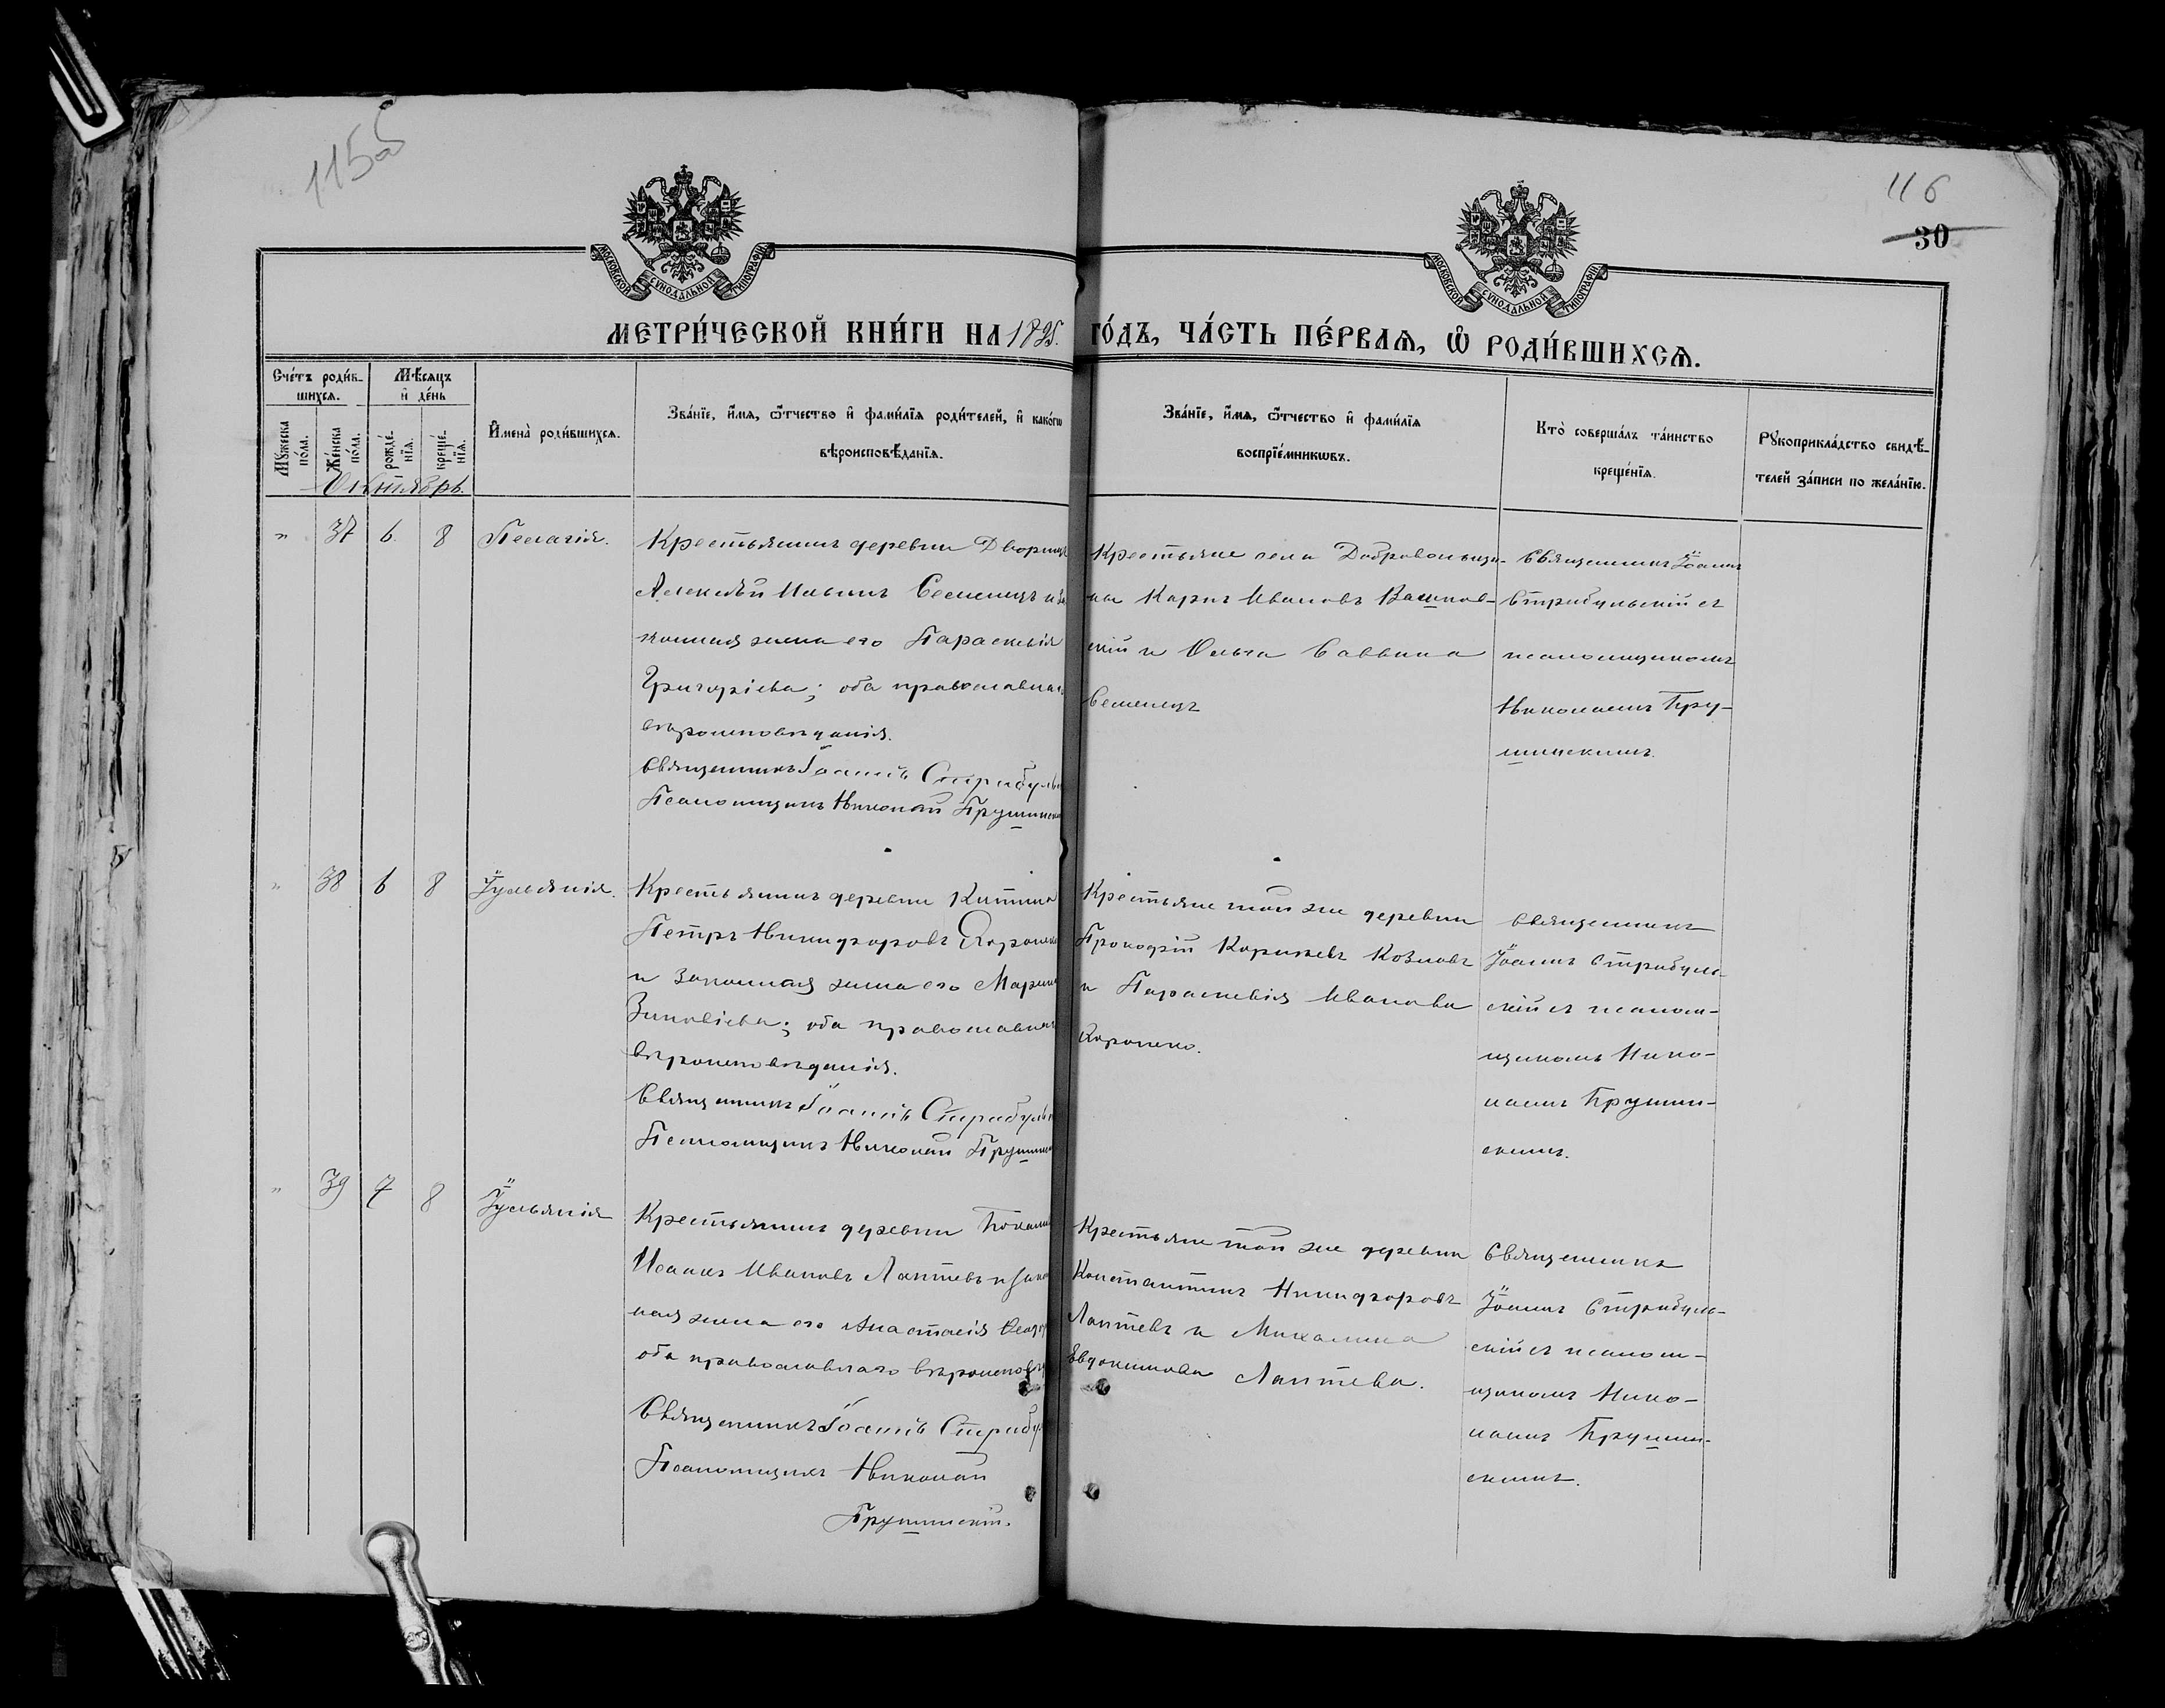 115об
116
30
МОСКОВСКОЙ СѴНОДАЛЬНОЙ ТИПОГРАФІИ
МОСКОВСКОЙ СѴНОДАЛЬНОЙ ТИПОГРАФІИ
МЕТРИ́ЧЕСКОЙ КНИ́ГИ НА 1895. ГО́ДЪ, ЧА́СТЬ ПЕ́РВАѦ, Ѡ҆ РОДИ́ВШИХСѦ.
Счéтъ роди́в-
шихсѧ.
Мѣ́сѧцъ
и҆ дéнь
Мꙋ́жеска пóла.
Жéнска пóла.
рождé-нїѧ.
крещé-нїѧ.
И҆менà роди́вшихсѧ.
Звáнїе, и҆́мѧ, ѻ҆́тчество и҆ фами́лїѧ роди́телей, и҆ какóгѡ
вѣроисповѣ́данїѧ.
Звáнїе, и҆́мѧ, ѻ҆́тчество и҆ фами́лїѧ
воспрїéмникѡвъ.
Ктò совершáлъ тáинство
крещéнїѧ.
Рꙋкоприклáдство свидѣ́-
телей зáписи по желáнїю.
Октябрь.
" 37 6. 8 Пелагія.
Крестьянинъ деревни Дворищъ
Алексѣй Ильинъ Семенецъ и за
конная жена его Параскевія
Григоріева; оба православнаг
вѣроисповѣданія.
Священникъ Іоаннъ Стрибульс
Псаломщикъ Николай Прушинск
Крестьяне села Добровольщи-
ны Карпъ Ивановъ Вашков-
скій и Ольга Саввина
Семенецъ
Священникъ Іоаннъ
Стрибульскій съ
псаломщикомъ
Николаемъ Пру-
шинскимъ.
" 38 6 8 Іуліанія.
Крестьянинъ деревни Китина
Петръ Никифоровъ Коронко
и законная жена его Марина
Зиновіева; оба православнаг
вѣроисповѣданія.
Священникъ Іоаннъ Стрибульс
Псаломщикъ Николай Прушинс
Крестьяне той же деревни
Прокофій Корнѣевъ Козловъ
и Параскевія Иванова
Коронко.
Священникъ
Іоаннъ Стрибуль-
скій съ псалом-
щикомъ Нико-
лаемъ Прушин-
скимъ.
" 39 7 8 Іуліанія
Крестьянинъ деревни
Исаакъ Ивановъ Лаптевъ и закон
ная жена его Анастасія
оба православнаго вѣроисповѣд
Священникъ Іоаннъ Стрибу
Псаломщикъ Николай
Прушинскій.
Крестьяне той же деревни
Константинъ Никифоровъ
Лаптевъ и Михалина
Евдокимова Лаптева.
Священникъ
Іоаннъ Стрибуль-
скій съ псалом-
щикомъ Нико-
лаемъ Прушин-
скимъ.